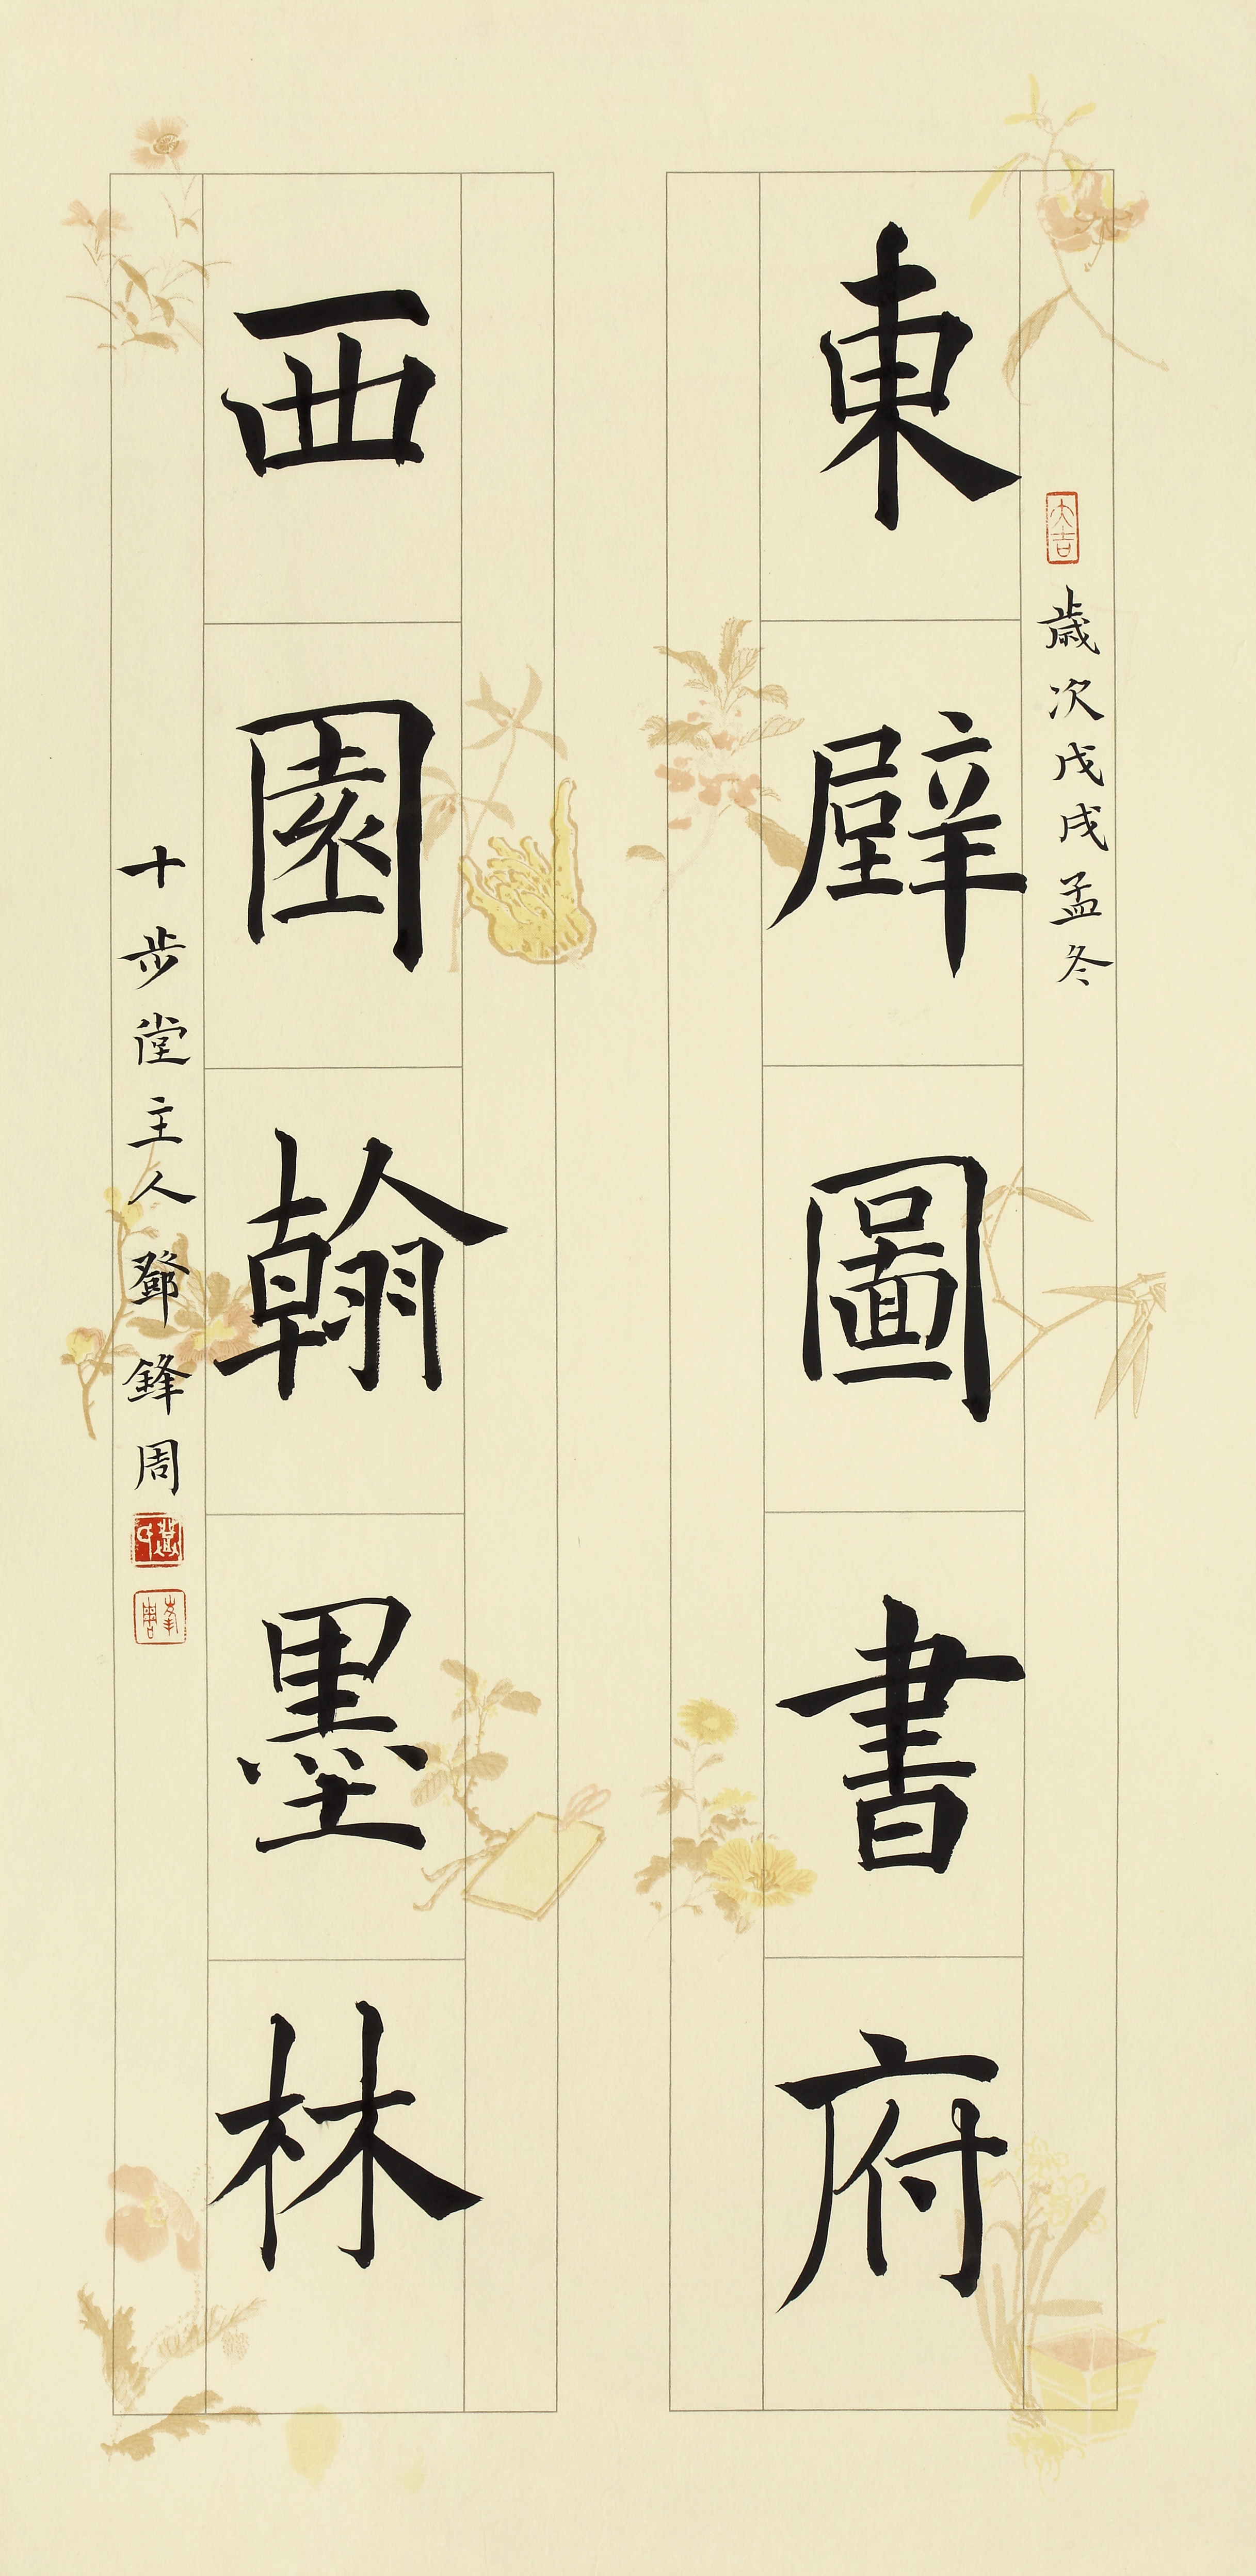 大吉
歲次戊戌孟冬
東壁圖書府
西園翰墨林
十步堂主人鄧鋒周